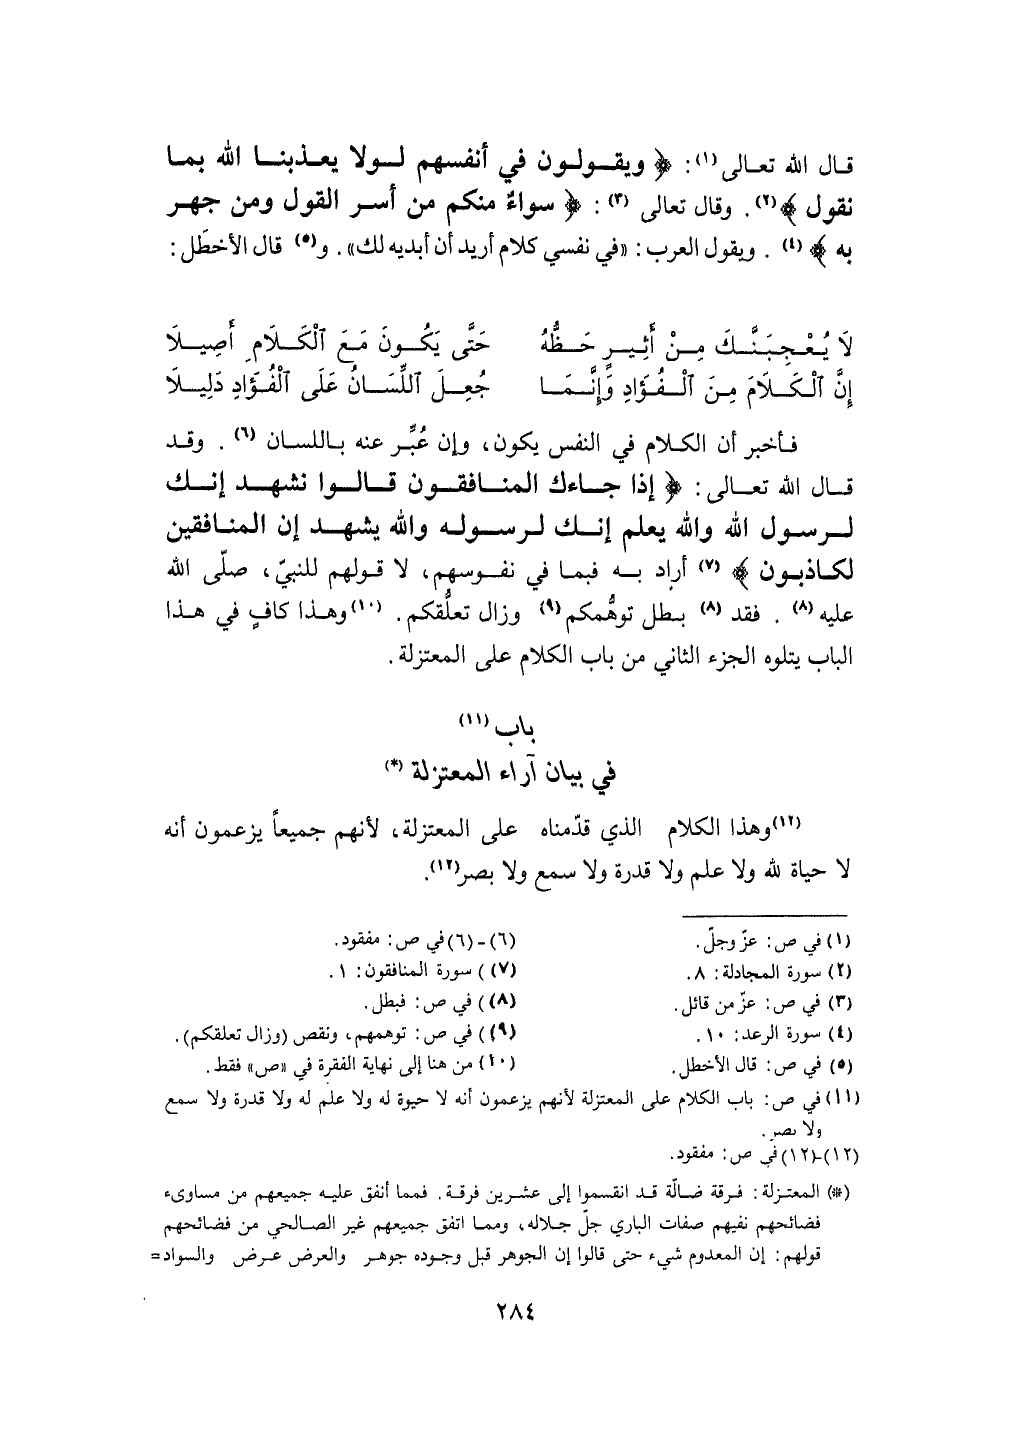 قال الله تعالى(١): ﴿ ويقولون في أنفسهم لولا يعذبنا الله بما
نقول ﴾(٢). وقال تعالى (٣) : ﴿ سواءٌ منكم من أسر القول ومن جهر
به ﴾ (٤) . ويقول العرب : «في نفسي كلام أريد أن أبديه لك» . و(٥) قال الأخطَل :
لَا يُعْجِبَنَّكَ مِنْ أَثِيرٍ حَظُّهُ حَتَّى يَكُونَ مَعَ ٱلْكَلَامِ أَصِيلَا
إِنَّ ٱلْكَلَامَ مِنَ ٱلْفُؤَادِ وَإِنَّمَا جُعِلَ ٱللِّسَانُ عَلَى ٱلْفُؤَادِ دَلِيلَا
فأخبر أن الكلام في النفس يكون، وإن عُبِّر عنه باللسان (٦) . وقد
قال الله تعالى : ﴿ إذا جاءك المنافقون قالوا نشهد إنك
لرسول الله والله يعلم إنك لرسوله والله يشهد إن المنافقين
لكاذبون ﴾ (٧) أراد به فيما في نفوسهم، لا قولهم للنبيّ، صلّى الله
عليه (٨) . فقد (٨) بطل توهُّمكم(٩) وزال تعلُّقكم. (١٠)وهذا كافٍ في هذا
الباب يتلوه الجزء الثاني من باب الكلام على المعتزلة.
باب (١١)
في بيان آراء المعتزلة (*)
(١٢)وهذا الكلام الذي قدّمناه على المعتزلة، لأنهم جميعاً يزعمون أنه
لا حياة لله ولا علم ولا قدرة ولا سمع ولا بصر(١٢).
(١) في ص: عزّ وجلّ.
(٢) سورة المجادلة: ٨.
(٣) في ص: عزّ من قائل.
(٤) سورة الرعد: ١٠.
(٥) في ص: قال الأخطل.
(٦)-(٦) في ص: مفقود.
(٧) ) سورة المنافقون: ١.
(٨) ) في ص: فبطل.
(٩) ) في ص: توهمهم، ونقص (وزال تعلقكم).
(١٠) من هنا إلى نهاية الفقرة في «ص» فقط.
(١١) في ص: باب الكلام على المعتزلة لأنهم يزعمون أنه لا حيوة له ولا علم له ولا قدرة ولا سمع
ولا بصر.
(١٢)-(١٢) في ص: مفقود.
(*) المعتزلة: فرقة ضالّة قد انقسموا إلى عشرين فرقة. فمما أنفق عليه جميعهم من مساوىء
فضائحهم نفيهم صفات الباري جلّ جلاله، ومما اتفق جميعهم غير الصالحي من فضائحهم
قولهم: إن المعدوم شيء حتى قالوا إن الجوهر قبل وجوده جوهر والعرض عرض والسواد=
٢٨٤